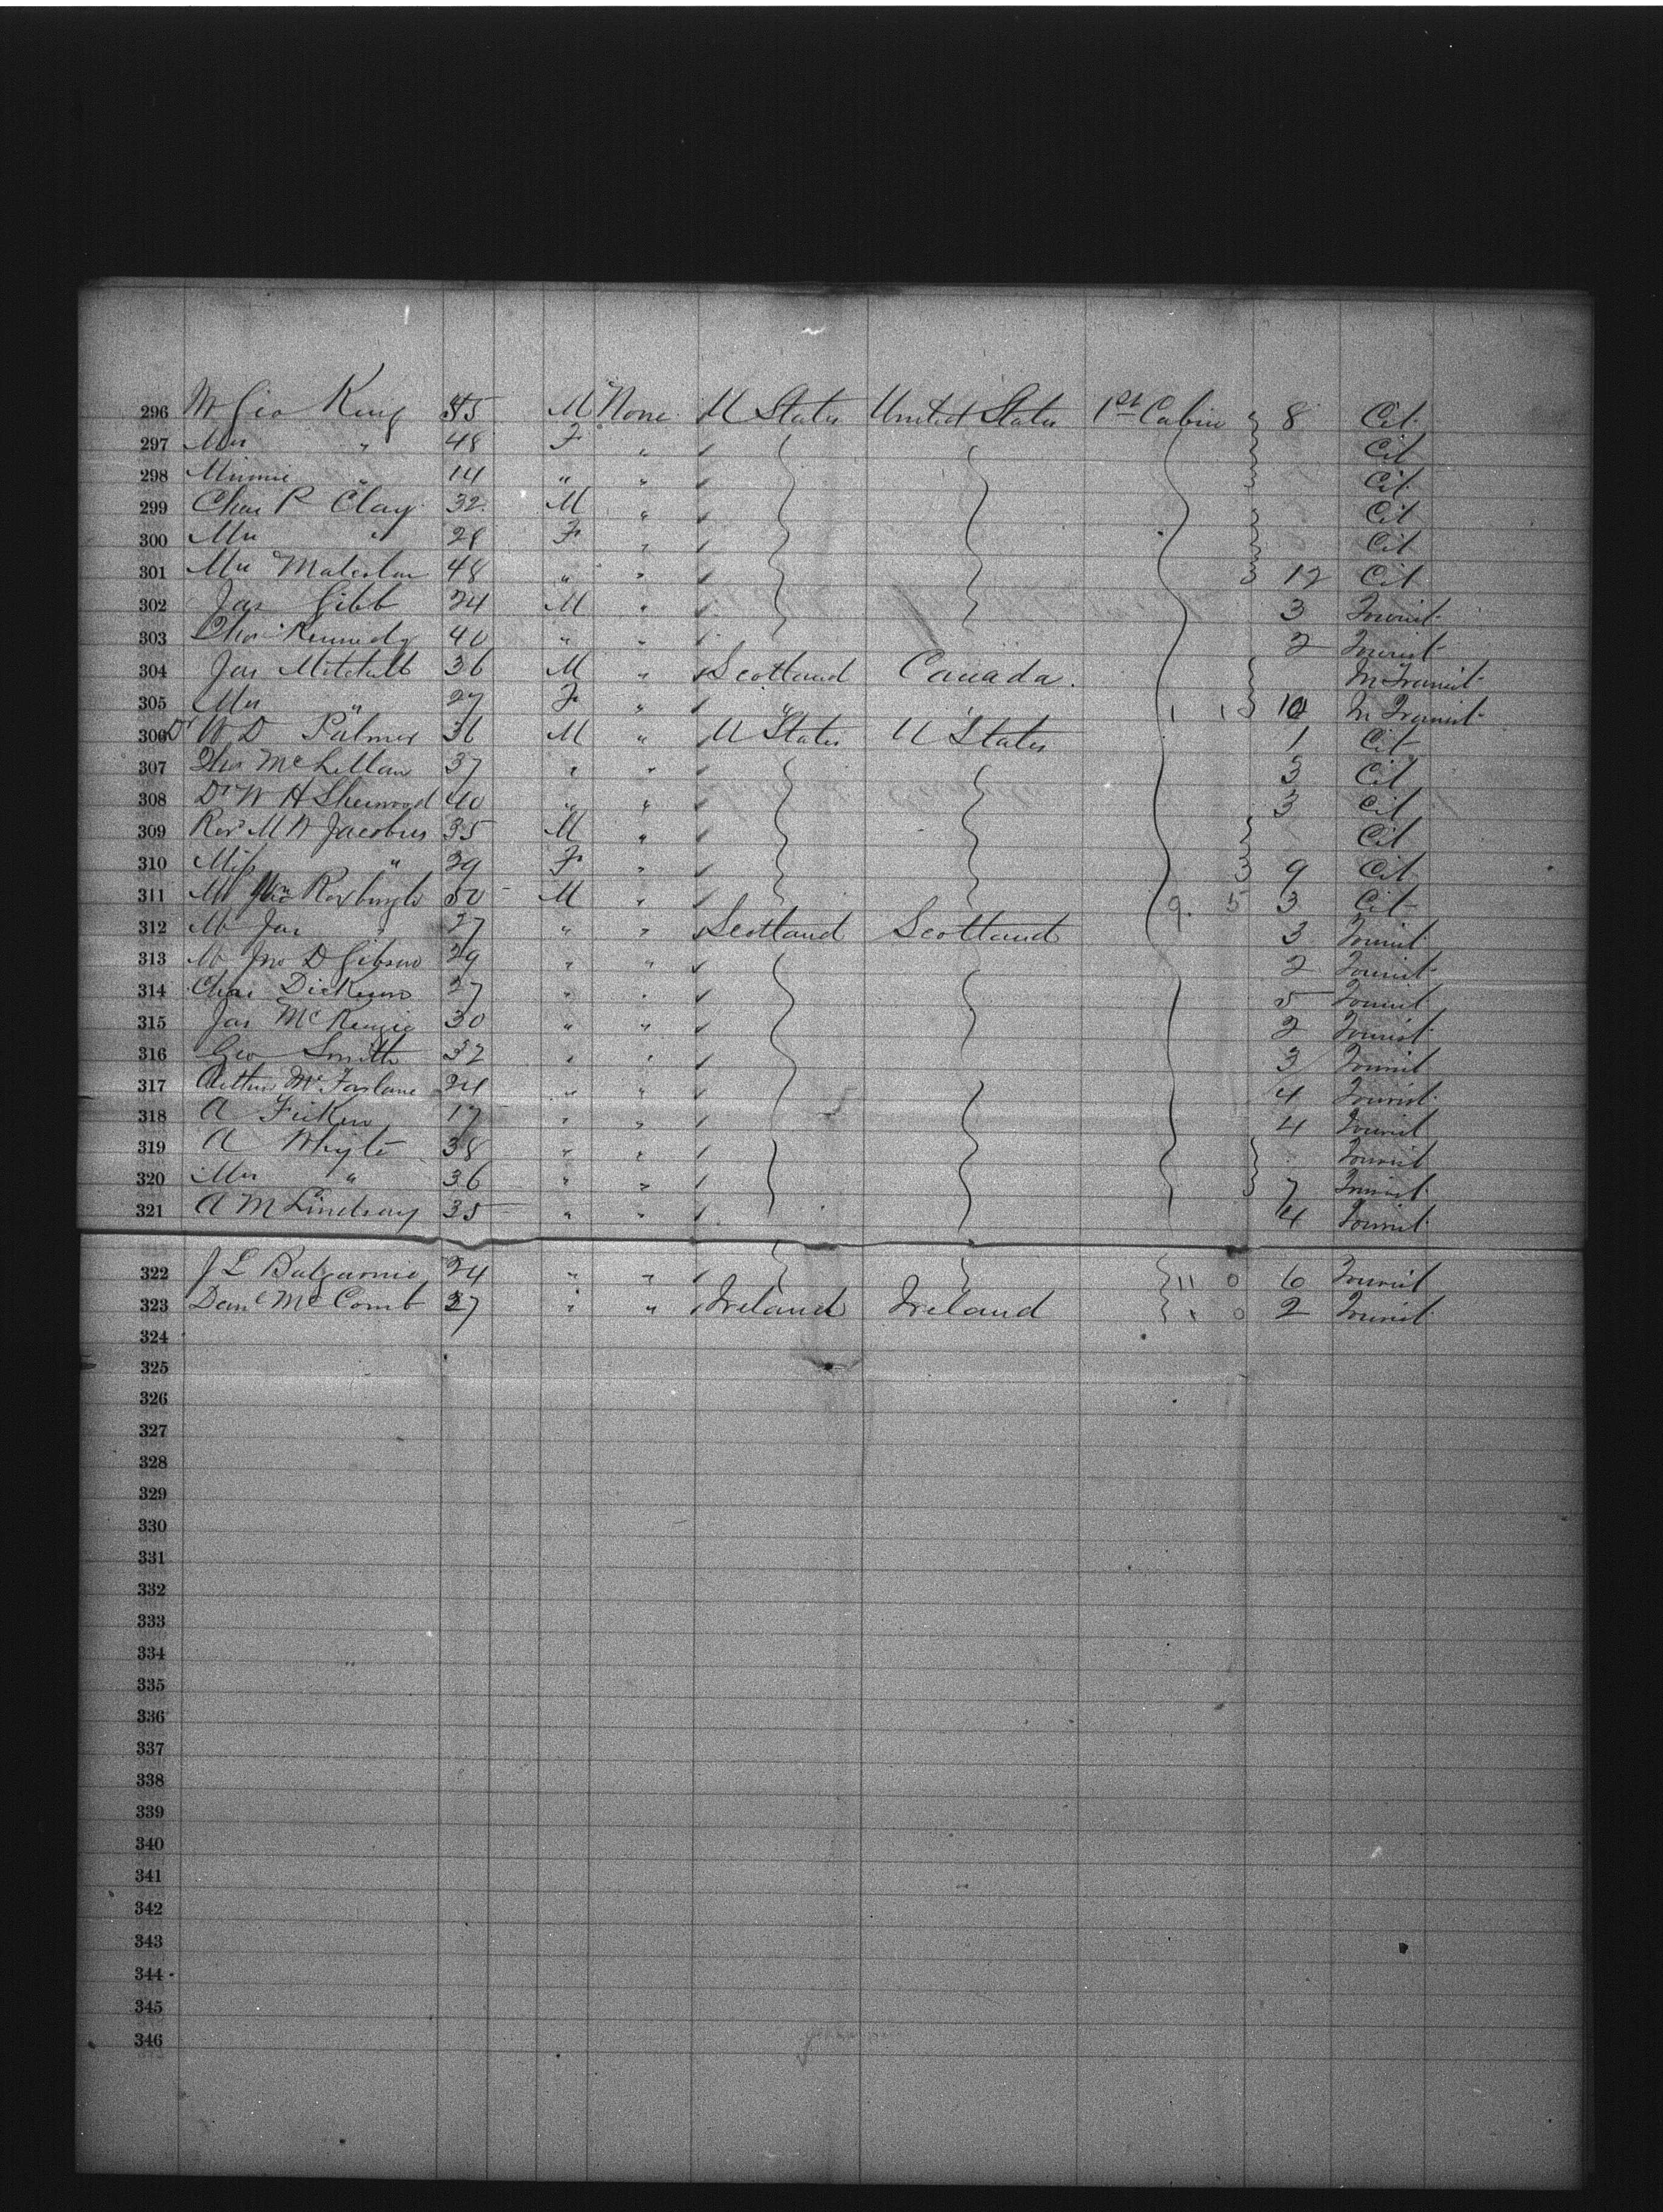 296 Mr Geo King 45 M None U States United States 1st Cabin 8 Cit
297 Mrs " 48 F " Cit
298 Minnie " 14 " " Cit
299 Chas P Clay 32 M " Cit
300 Mrs " 28 F " Cit
301 Mrs 48 " " 12 Cit
302 Jas Gibb 24 M " 3 Tourist
303 Chas Kennedy 40 " " 2 Tourist
304 Jas Mitchell 36 M " Scotland Canada In Transit
305 Mrs " 27 F " " 1 1 10 In Transit
306 Dr W D Palmer 36 M " U States U States 1 Cit
307 Thos McLellan 37 " " 3 Cit
308 Dr W H Sherwood 40 " " 3 Cit
309 Rev M W Jacobus 35 M " Cit
310 Miss " 29 F " 9 Cit
311 Mr Roxburgh 50 M " 9. 5 3 Cit
312 Mr Jas " 27 " " Scotland Scotland 3 Tourist
313 Mr Jno D Gibson 29 " " 2 Tourist
314 Chas Dickson 27 " " 5 Tourist
315 Jas McKenzie 30 " " 2 Tourist
316 Geo Smith 32 " " 3 Tourist
317 Arthur McFarlane 24 " " 4 Tourist
318 A 17 " " 4 Tourist
319 A Whyte 38 " " Tourist
320 Mrs " 36 " " 7 Tourist
321 A M Lindsay 35 " " 4 Tourist
322 J L Balgarnie 24 " " 11 0 6 Tourist
323 Danl McComb 27 " " Ireland Ireland 1 0 2 Tourist
324
325
326
327
328
329
330
331
332
333
334
335
336
337
338
339
340
341
342
343
344
345
346